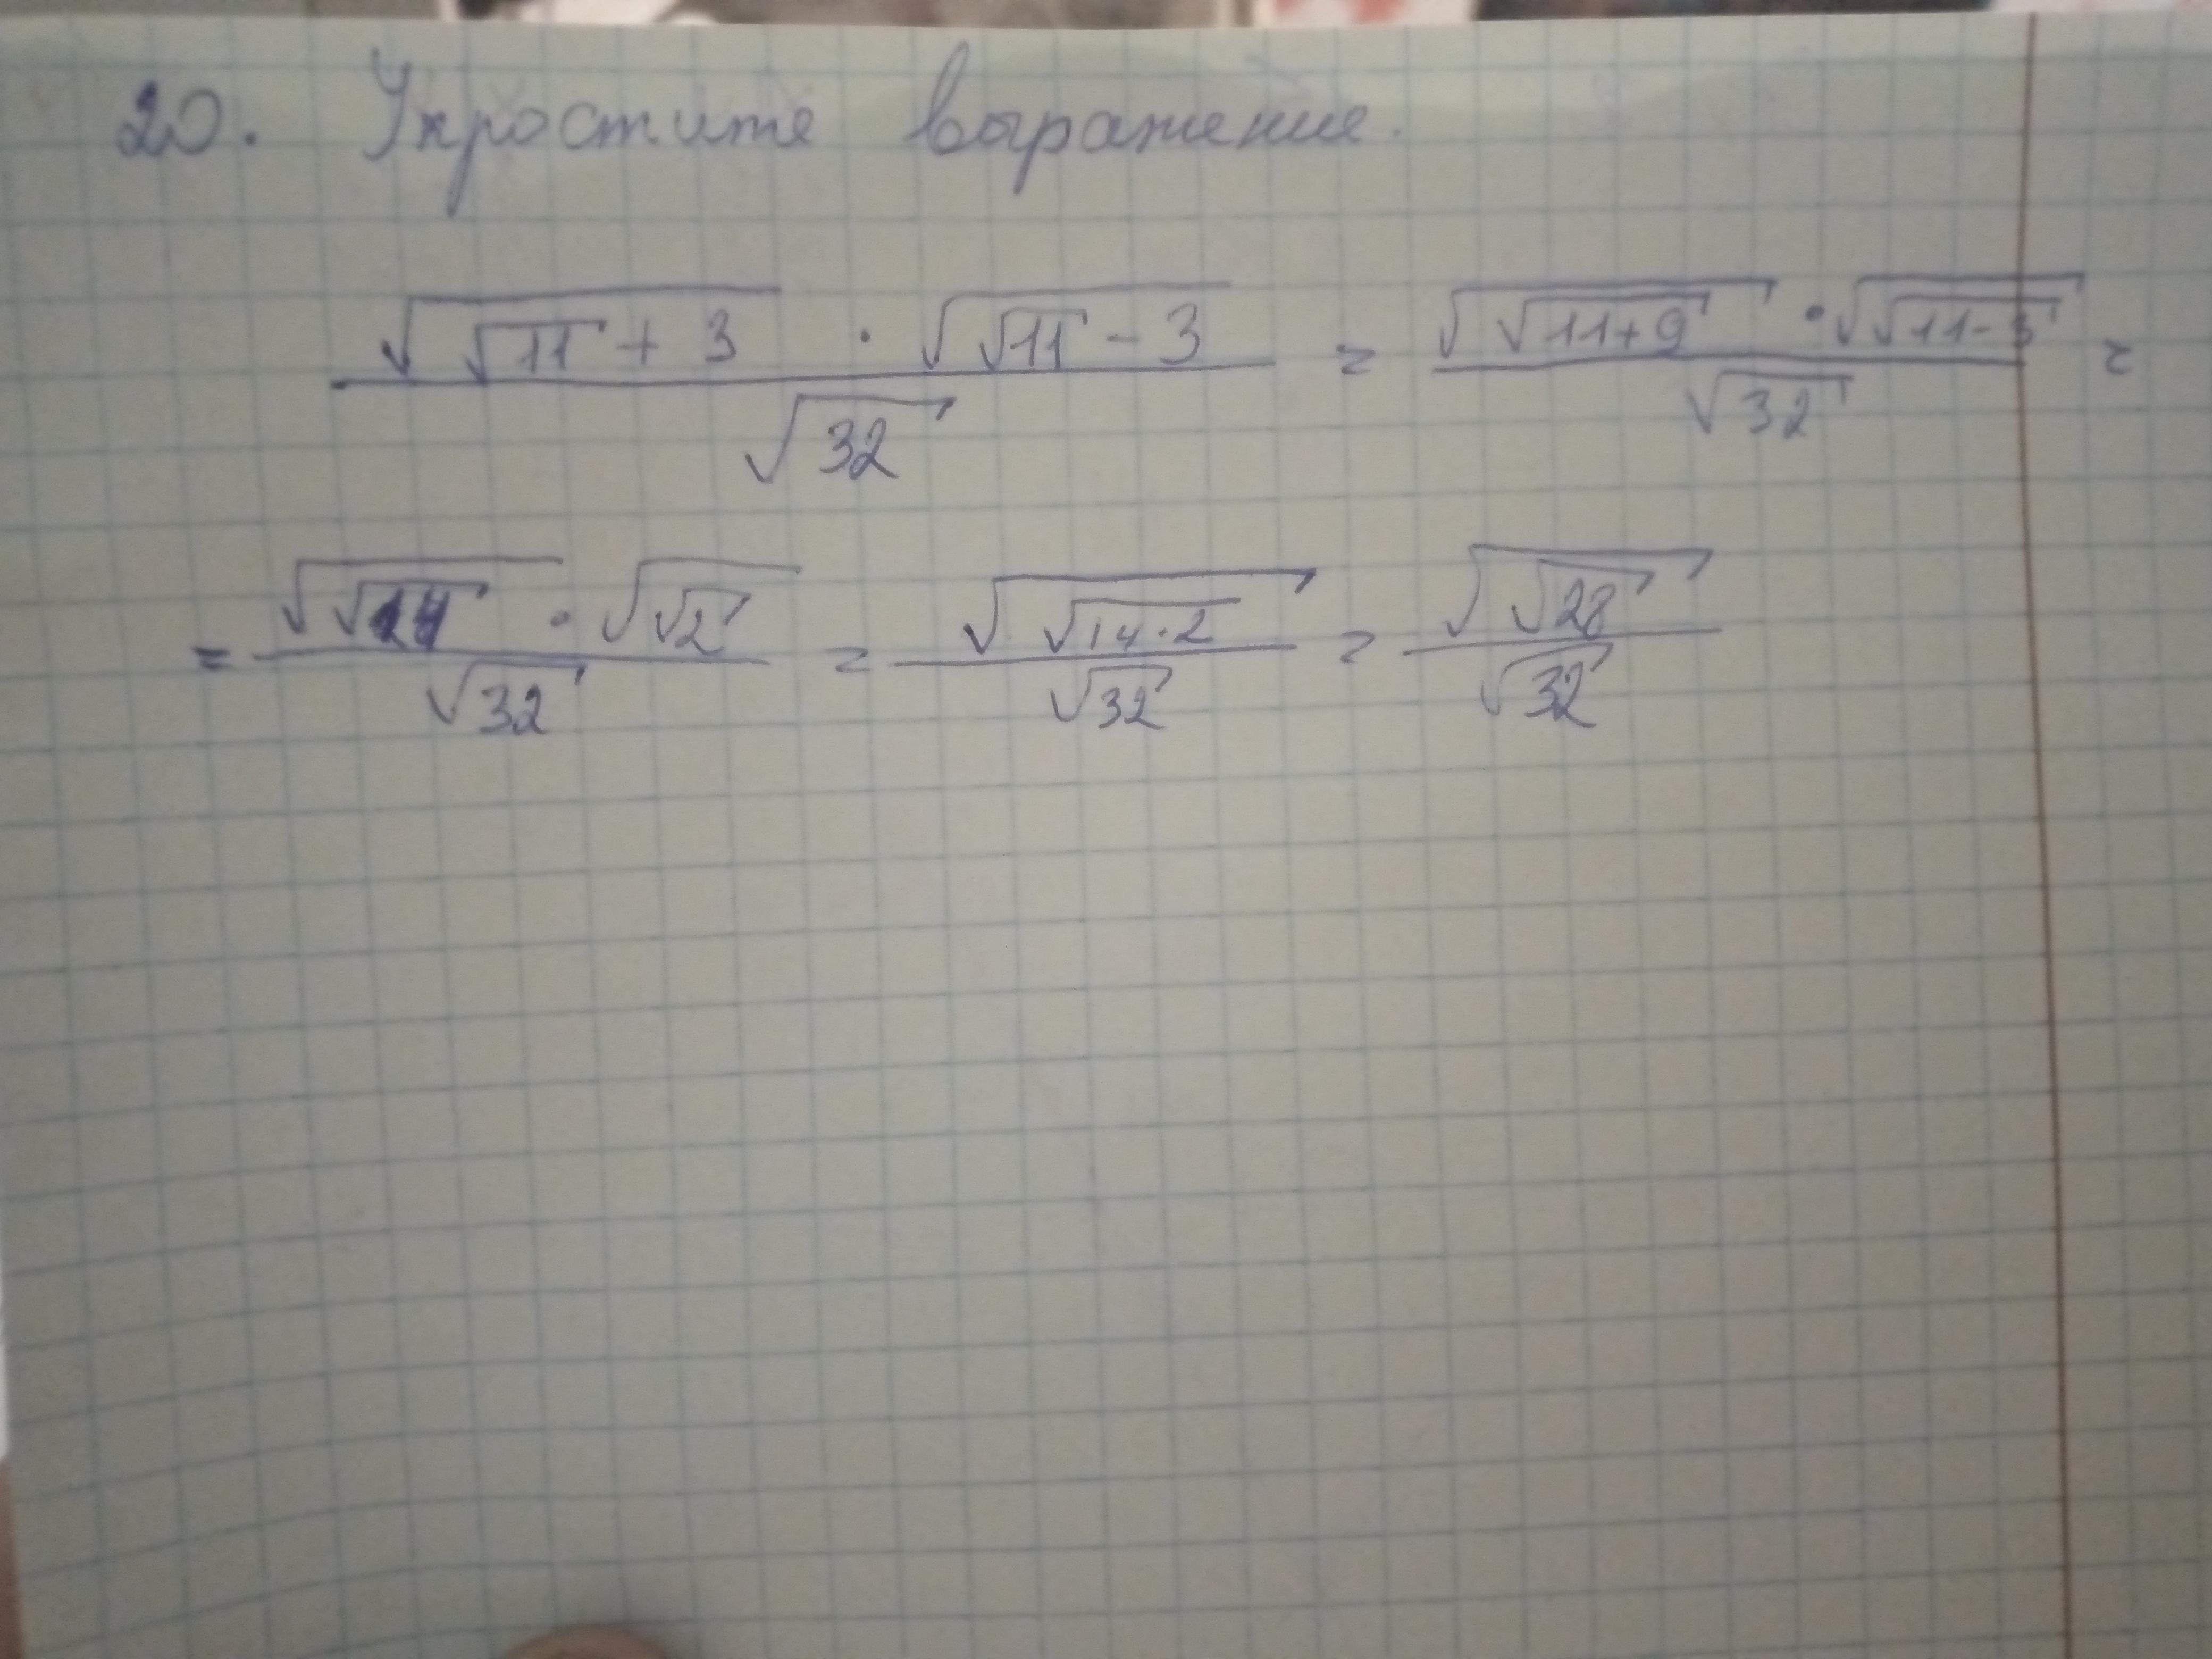 20. Упростите выражение.
√(√11 + 3) · √(√11 - 3) / √32 = √(√(11+9)) · √(√(11-9)) / √32 =
= √(√14) · √(√2) / √32 = √(√(14·2)) / √32 = √(√28) / √32